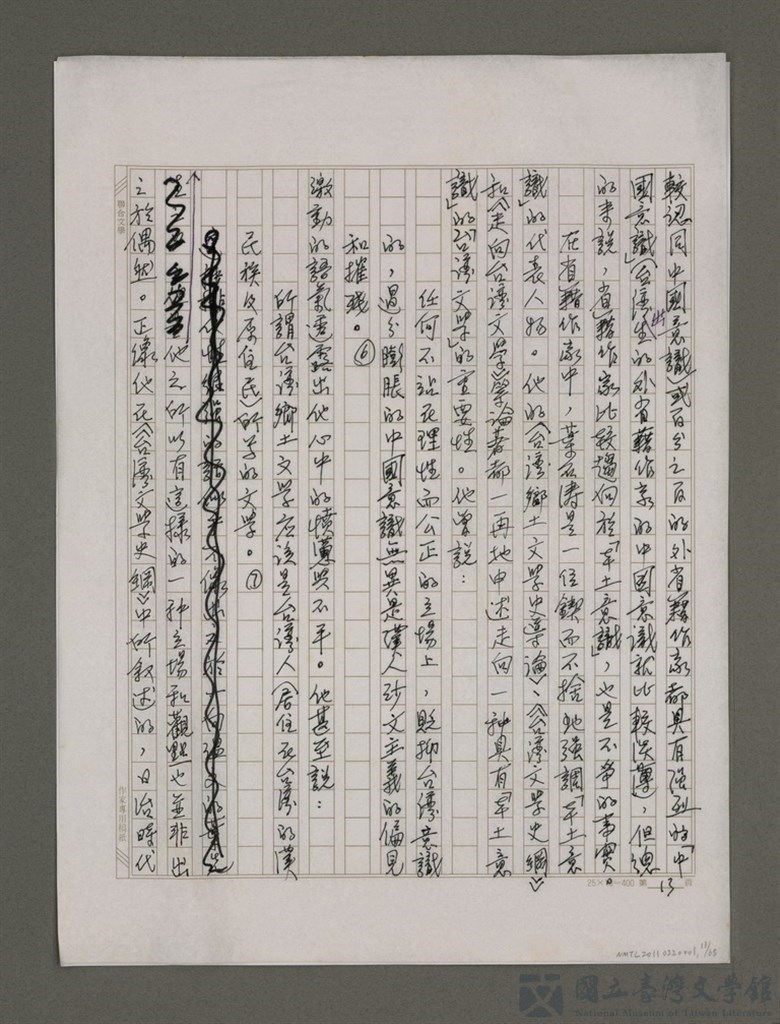 較認同中國意識」或百分之百的外省籍作家都具有強烈的「中
國意識」（台灣出生的外省籍作家的中國意識就比較淡薄），但總
的來說，省籍作家比較趨向於「本土意識」，也是不爭的事實。
在省籍作家中，葉石濤是一位鍥而不捨地強調「本土意
識」的代表人物。他的《台灣鄉土文學史導論》、《台灣文學史綱》
和《走向台灣文學》等論著都一再地申述走向一種具有「本土意
識」的「台灣文學」的重要性。他曾說：
任何不站在理性而公正的立場上，貶抑台灣意識
的，過分膨脹的中國意識無異是漢人沙文主義的偏見
和摧殘。⑥
激動的語氣透露出他心中的憤懣與不平。他甚至說：
所謂台灣鄉土文學應該是台灣人（居住在台灣的漢
民族及原住民）所寫的文學。⑦
他之所以有這樣的一種立場和觀點也並非出
之於偶然。正像他在《台灣文學史綱》中所敘述的，日治時代
聯合文學
作家專用稿紙
第13頁
NMTL20110220001, 13/25
國立臺灣文學館
National Museum of Taiwan Literature